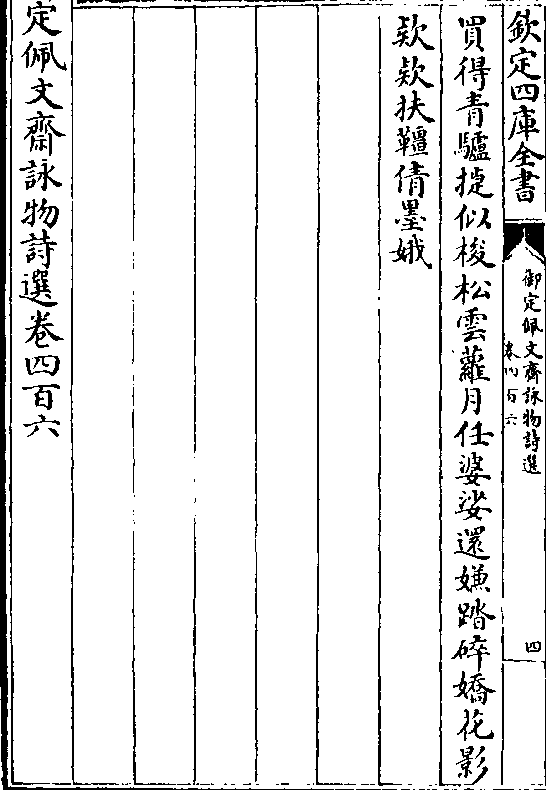 欽定四庫全書
御定佩文齋詠物詩選
卷四百六
四
買得青驢捷似梭松雲蘿月任婆娑還嫌踏碎嬌花影
欵欵扶韁倩墨娥
定佩文齋詠物詩選卷四百六